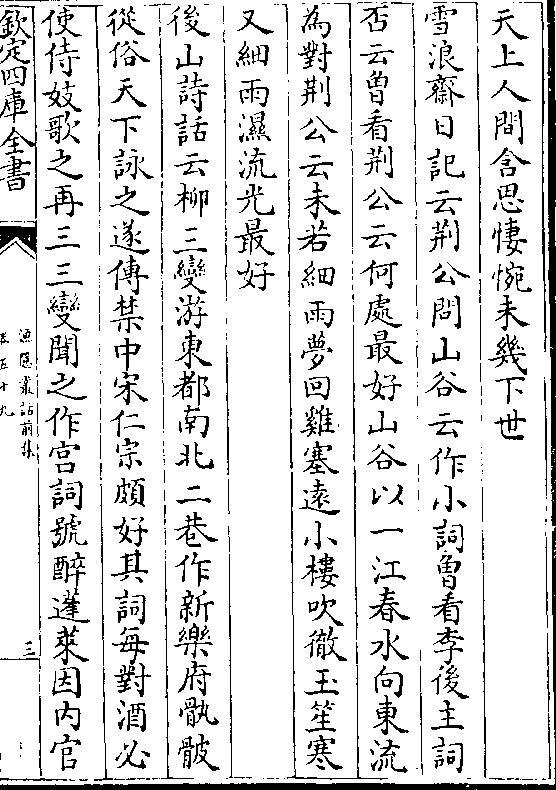 天上人間含思悽惋未幾下世
雪浪齋日記云荆公問山谷云作小詞曾看李後主詞
否云曾看荆公云何處最好山谷以一江春水向東流
為對荆公云未若細雨夢回雞塞遠小樓吹徹玉笙寒
又細雨濕流光最好
後山詩話云柳三變游東都南北二巷作新樂府骩骳
從俗天下詠之遂傳禁中宋仁宗頗好其詞每對酒必
使侍妓歌之再三三變聞之作宫詞號醉蓬萊因内官
欽定四庫全書
漁隱叢話前集
卷五十九
三